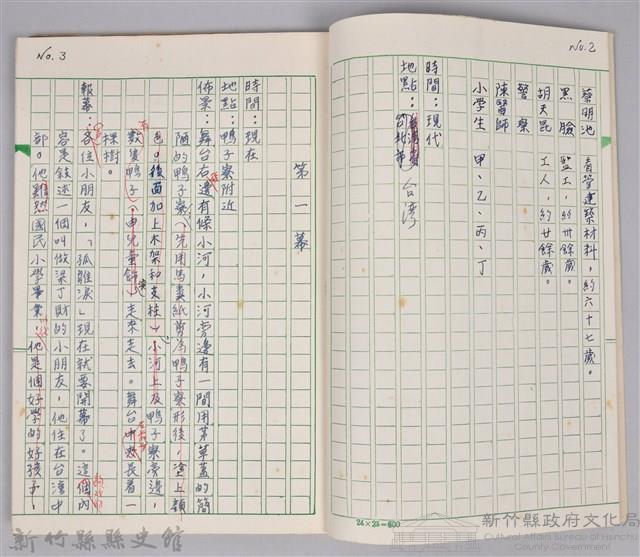 No. 2
蔡明池 青營建築材料，約六十七歲。
黑臉 監工，約卅餘歲。
胡天昆 工人，約廿餘歲。
警察
陳醫師
小學生 甲、乙、丙、丁
時間：現代
地點：台灣
24×25=600
No. 3
第一幕
時間：現在
地點：鴨子寮附近
佈景：舞台右邊有條小河，小河旁邊有一間用茅草蓋的簡
陋的鴨子寮（先用馬糞紙剪為鴨子寮形後，塗上顏
色。後面加上木架和支柱）小河上及鴨子寮旁邊，
數隻鴨子（由兒童飾）走來走去。舞台中央長着一
棵樹。
報幕：各位小朋友，「孤雛淚」現在就要開幕了。這個內
容是敘述一個叫做梁丁財的小朋友，他住在台灣中
部。他雖然國民小學畢業，他是個好學的好孩子，
新竹縣縣史館
新竹縣政府文化局
Cultural Affairs Bureau of Hsinchu County Government